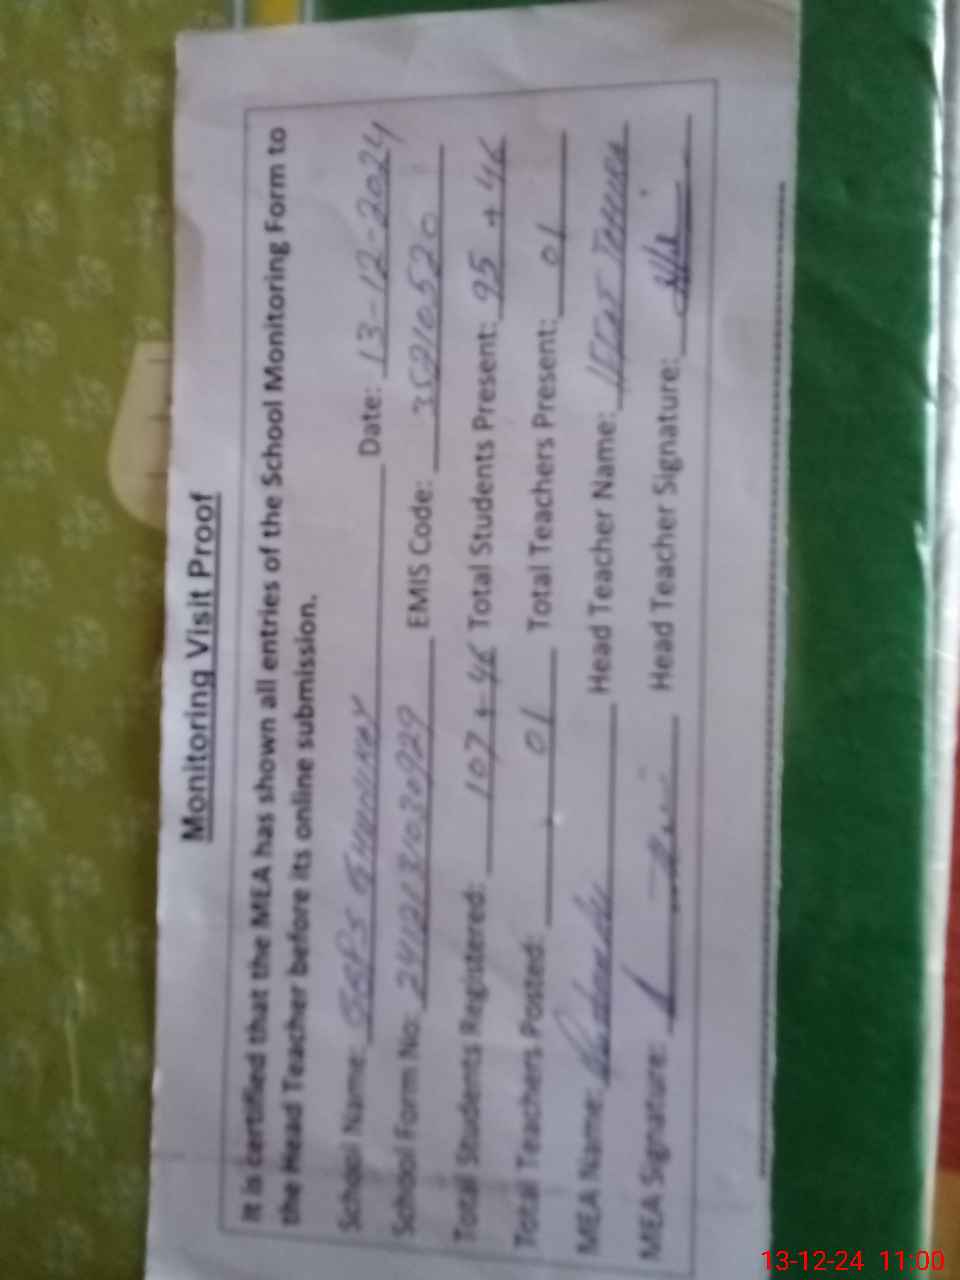 Monitoring Visit Proof
It is certified that the MEA has shown all entries of the School Monitoring Form to
the Head Teacher before its online submission.
School Name: Date: 13-12-2024
School Form No: EMIS Code: 35210520
Total Students Registered: 107 + 46 Total Students Present: 95 + 46
Total Teachers Posted: 01 Total Teachers Present: 01
MEA Name: Head Teacher Name:
MEA Signature: Head Teacher Signature:
13-12-24 11:00